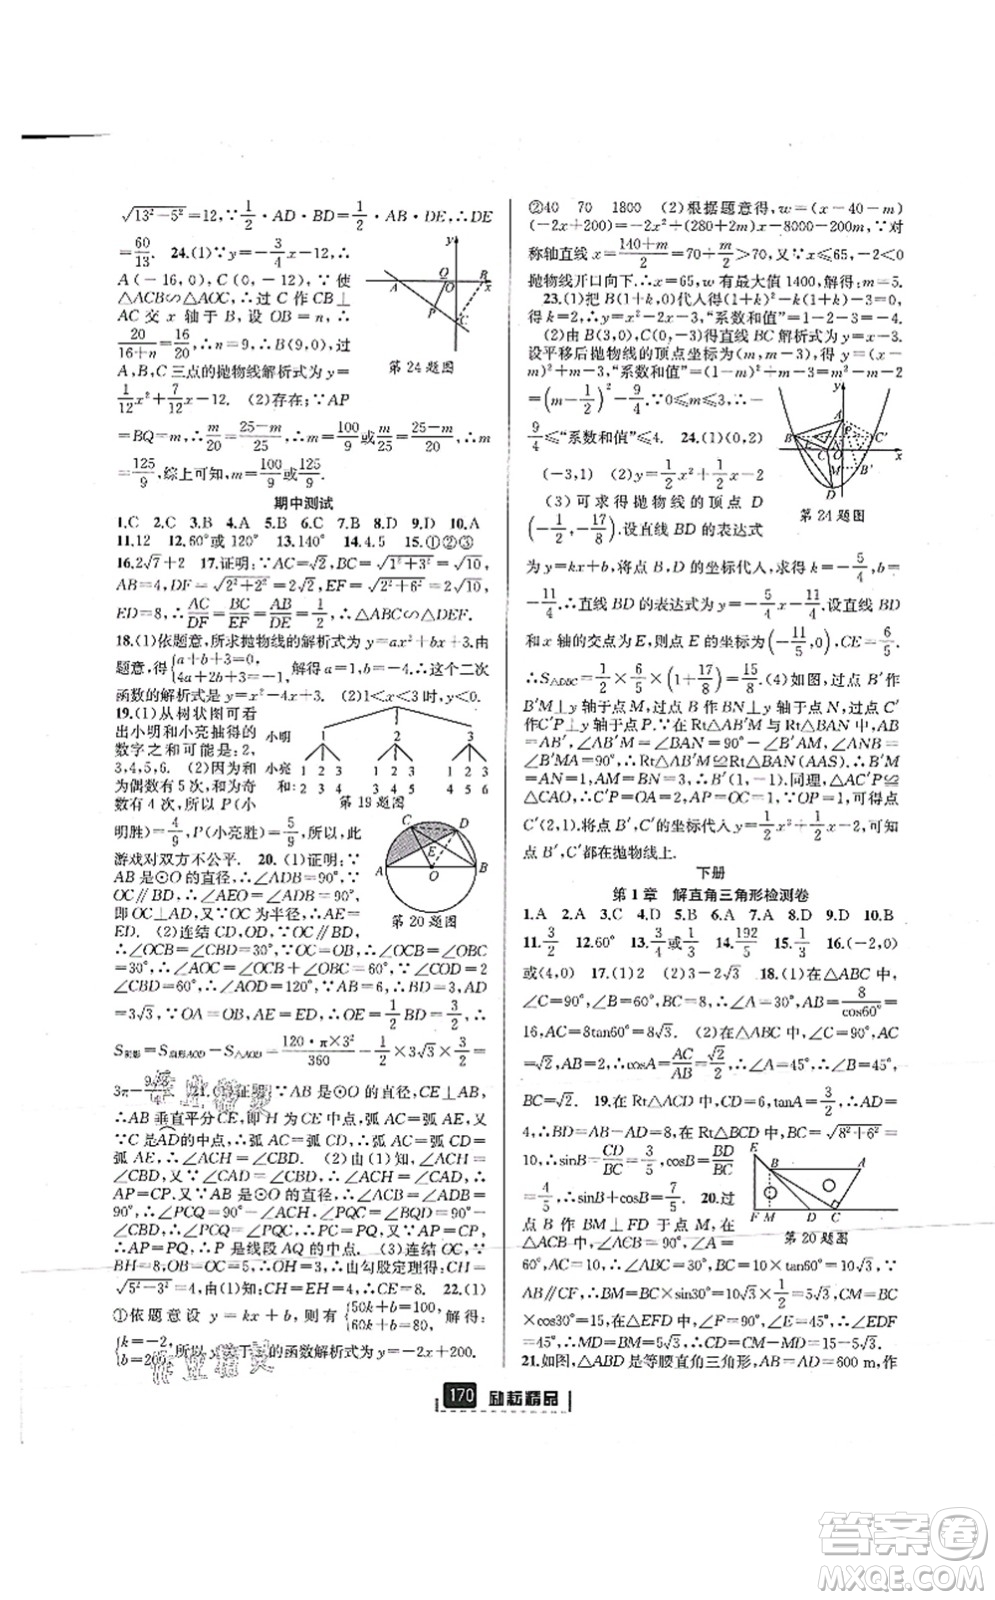 √(13²−5²)=12,∵1/2·AD·BD=1/2·AB·DE,∴DE
=60/13. 24.(1)∵y=−3/4x−12,∴
A(−16,0),C(0,−12),∵使
△ACB∽△AOC,∴过C作CB⊥
AC交x轴于B,设OB=n,∴
20/(16+n)=16/20,∴n=9,∴B(9,0)∴过
A,B,C三点的抛物线解析式为y=
1/12x²+7/12x−12. (2)存在;∵AP
=BQ=m,∴m/20=(25−m)/25=100/9或m/25=(25−m)/20,∴m
=125/9.综上可知,m=100/9或125/9.
第24题图
期中测试
1.C 2.C 3.B 4.A 5.B 6.C 7.B 8.D 9.D 10.A
11.12 12.60°或120° 13.140° 14.4.5 15.①②③
16.2√7+2 17.证明:∵AC=√2,BC=√(1²+3²)=√10,
AB=4,DF=√(2²+2²)=2√2,EF=√(2²+6²)=2√10,
ED=8,∴AC/DF=BC/EF=AB/DE=1/2,∴△ABC∽△DEF.
18.(1)依题意,所求抛物线的解析式为y=ax²+bx+3,由
题意,得{a+b+3=0 4a+2b+3=−1,解得a=1,b=−4∴这个二次
函数的解析式是y=x²−4x+3. (2)1<x<3时,y<0.
19.(1)从树状图可看
出小明和小亮抽得的
数字之和可能是:2,
3,4,5,6. (2)因为和
为偶数有5次,和为奇
数有4次,所以P(小
小明 1 2 3
小亮 1 2 3 1 2 3 1 2 3
和: 2 3 4 3 4 5 4 5 6
第19题图
明胜)=4/9,P(小亮胜)=5/9,所以,此
游戏对双方不公平. 20.(1)证明:∵
AB是⊙O的直径,∴∠ADB=90°,∵
OC∥BD,∴∠AEO=∠ADB=90°,
即OC⊥AD,又∵OC为半径,∴AE=
ED. (2)连结CD,OD,∵OC∥BD,
∴∠OCB=∠CBD=30°,∵OC=OB,∴∠OCB=∠OBC
=30°,∴∠AOC=∠OCB+∠OBC=60°,∵∠COD=2
∠CBD=60°,∴∠AOD=120°,∵AB=6,∴BD=3,AD=
3√3,∵OA=OB,AE=ED,∴OE=1/2BD=3/2,∴
第20题图
S阴影=S扇形AOD−S△AOD=120·π×3²/360−1/2×3√3×3/2=
3π−9√3/4. 21.(1)证明:∵AB是⊙O的直径,CE⊥AB,
∴AB垂直平分CE,即H为CE中点,∴弧AC=弧AE.又
∵C是AD的中点,∴弧AC=弧CD,∴弧AC=弧CD=
弧AE,∴∠ACH=∠CBD. (2)由(1)知,∠ACH=
∠CBD,又∵∠CAD=∠CBD,∴∠CAD=∠ACH,∴
AP=CP,又∵AB是⊙O的直径,∴∠ACB=∠ADB=
90°,∴∠PCQ=90°−∠ACH,∠PQC=∠BQD=90°−
∠CBD,∴∠PCQ=∠PQC,∴PC=PQ,∵AP=CP,
∴AP=PQ,∴P是线段AQ的中点. (3)连结OC,∵
BH=8,OB=OC=5,∴OH=3,∴由勾股定理得:CH=
√(5²−3²)=4,由(1)知:CH=EH=4,∴CE=8. 22.(1)
①依题意设y=kx+b,则有{50k+b=100, 60k+b=80, 解得:
{k=−2, b=200,所以y关于x的函数解析式为y=−2x+200.
②40 70 1800 (2)根据题意得,w=(x−40−m)
(−2x+200)=−2x²+(280+2m)x−8000−200m,∵对
称轴直线x=(140+m)/2=70+m/2>70,又∵−2<0
抛物线开口向下,∴x=65,w有最大值1400,解得:m=5.
23.(1)把B(1+k,0)代入得(1+k)²−2(1+k)−3=0,
得k=2,∴y=x²−2x−3,∴“系数和值”=1−2−3=−4.
(2)由B(3,0),C(0,−3)得直线BC解析式为y=x−3,
设平移后抛物线的顶点坐标为(m,m−3),∴y=(x−m)²
+m−3,∴“系数和值”=(1−m)²+m−3=m²−m−2
=(m−1/2)²−9/4,∵0≤m≤3,∴−
9/4≤“系数和值”≤4. 24.(1)(0,2)
(−3,1) (2)y=1/2x²+1/2x−2
(3)可求得抛物线的顶点D
(−1/2,−17/8).设直线BD的表达式
第24题图
为y=kx+b,将点B,D的坐标代入,可求得k=−5/4,b=
−11/4.∴直线BD的表达式为y=−5/4x−11/4.设直线BD
和x轴的交点为E,则点E的坐标为(−11/5,0),CE=6/5.
∴S△DBC=1/2×6/5×(1+17/8)=15/8. (4)如图,过点B′作
B′M⊥y轴于点M,过点B作BN⊥y轴于点N,过点C′
作C′P⊥y轴于点P.∵在Rt△AB′M与Rt△BAN中,AB
=AB′,∠AB′M=∠BAN=90°−∠B′AM,∠ANB=
∠B′MA=90°,∴Rt△AB′M≌Rt△BAN(AAS).∴B′M
=AN=1,AM=BN=3,∴B′(1,−1).同理△AC′P≌
△CAO,∴C′P=OA=2,AP=OC=1,∵OP=3,可得点
C′(2,1).将点B′,C′的坐标代入y=1/2x²+1/2x−2,可知
点B′,C′都在抛物线上.
下册
第1章 解直角三角形检测卷
1.A 2.A 3.C 4.D 5.B 6.A 7.A 8.D 9.D 10.B
11.3/2 12.60° 13.1/4或3/4 14.192/5 15.1/3 16.(−2,0)
或(4,0) 17.(1)2 (2)3−2√3 18.(1)在△ABC中,
∠C=90°,∠B=60°,∴∠A=30°,∴AB=8/cos60°=
16,AC=8tan60°=8√3. (2)在△ABC中,∠C=90°,AC
=√2,AB=2,∴sinB=AC/AB=√2/2,∴∠B=45°,∴∠A=45°,
BC=AC=√2. 19.在Rt△ACD中,CD=6,tanA=3/2,
∴AD=4.∴BD=8.在Rt△BCD中,BC=√(8²+6²)=
10,∴sinB=CD/BC=3/5,cosB=BD/BC
=4/5,∴sinB+cosB=7/5. 20.过
点B作BM⊥FD于点M,在
△ACB中,∠ACB=90°,∠A=
第20题图
60°,AC=10,∴∠ABC=30°,BC=10×tan60°=10√3,∵
AB∥CF,∴BM=BC×sin30°=10√3×1/2=5√3,CM=
BC×cos30°=15,在△EFD中,∠F=90°,∠E=45°,∴∠EDF
=45°,∴MD=BM=5√3,∴CD=CM−MD=15−5√3.
21.如图,△ABD是等腰直角三角形,AB=AD=600 m,作
170 励耘精品
答案圈
MXQE.COM